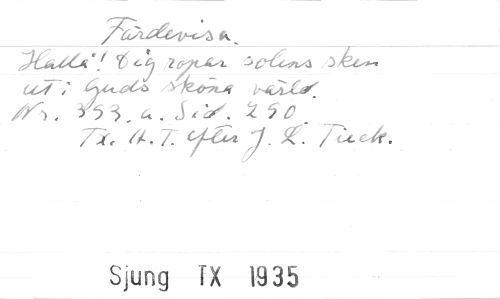 Färdevisa.
Hallå! Dig ropar solens sken
ut i Guds sköna värld.
Nr. 393.a. Sid. 290.
Tx. H.T. efter J. L. Tieck.
Sjung TX 1935